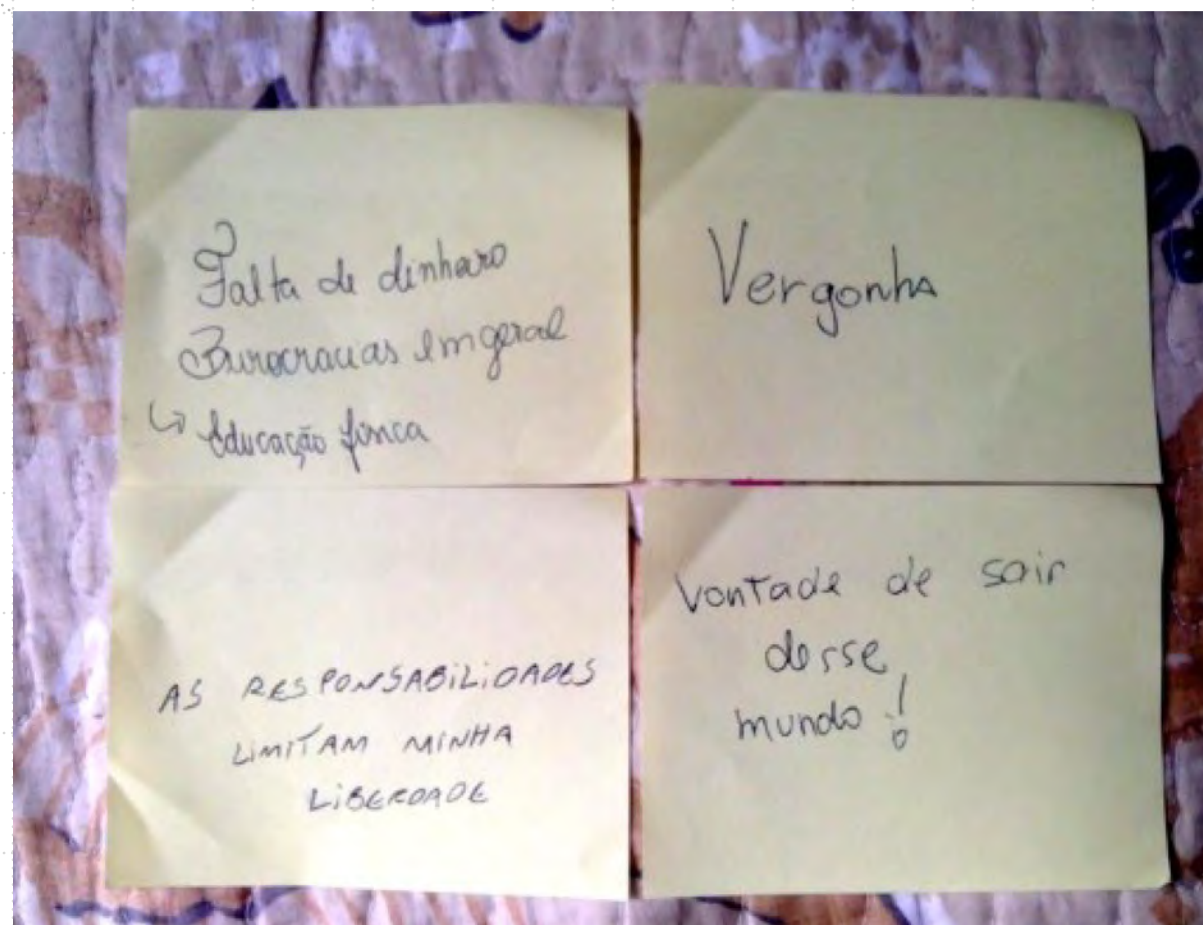 Falta de dinheiro
Burocracias em geral
↳ Educação física
Vergonha
AS RESPONSABILIDADES
LIMITAM MINHA
LIBERDADE
Vontade de sair
desse
mundo!